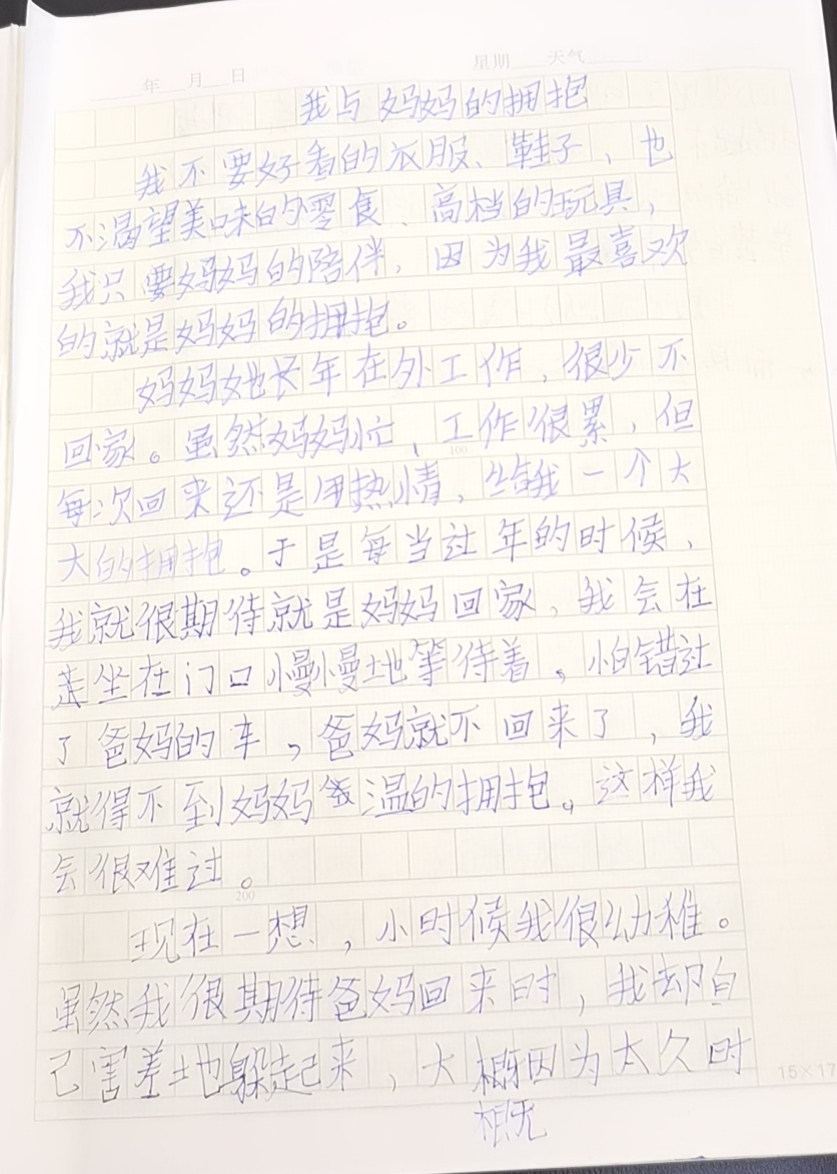 年 月 日 星期 天气
我与妈妈的拥抱
我不要好看的衣服、鞋子，也
不渴望美味的零食、高档的玩具，
我只要妈妈的陪伴，因为我最喜欢
的就是妈妈的拥抱。
妈妈她长年在外工作，很少不
回家。虽然妈妈忙，工作很累，但
每次回来还是用热情，给我一个大
大的拥抱。于是每当过年的时候，
我就很期待就是妈妈回家，我会在
坐在门口慢慢地等待着。怕错过
了爸妈的车，爸妈就不回来了，我
就得不到妈妈温的拥抱。这样我
会很难过。
现在一想，小时候我很幼稚。
虽然我很期待爸妈回来时，我却自
己害羞地躲起来，大概因为太久时
概
100
200
15×17